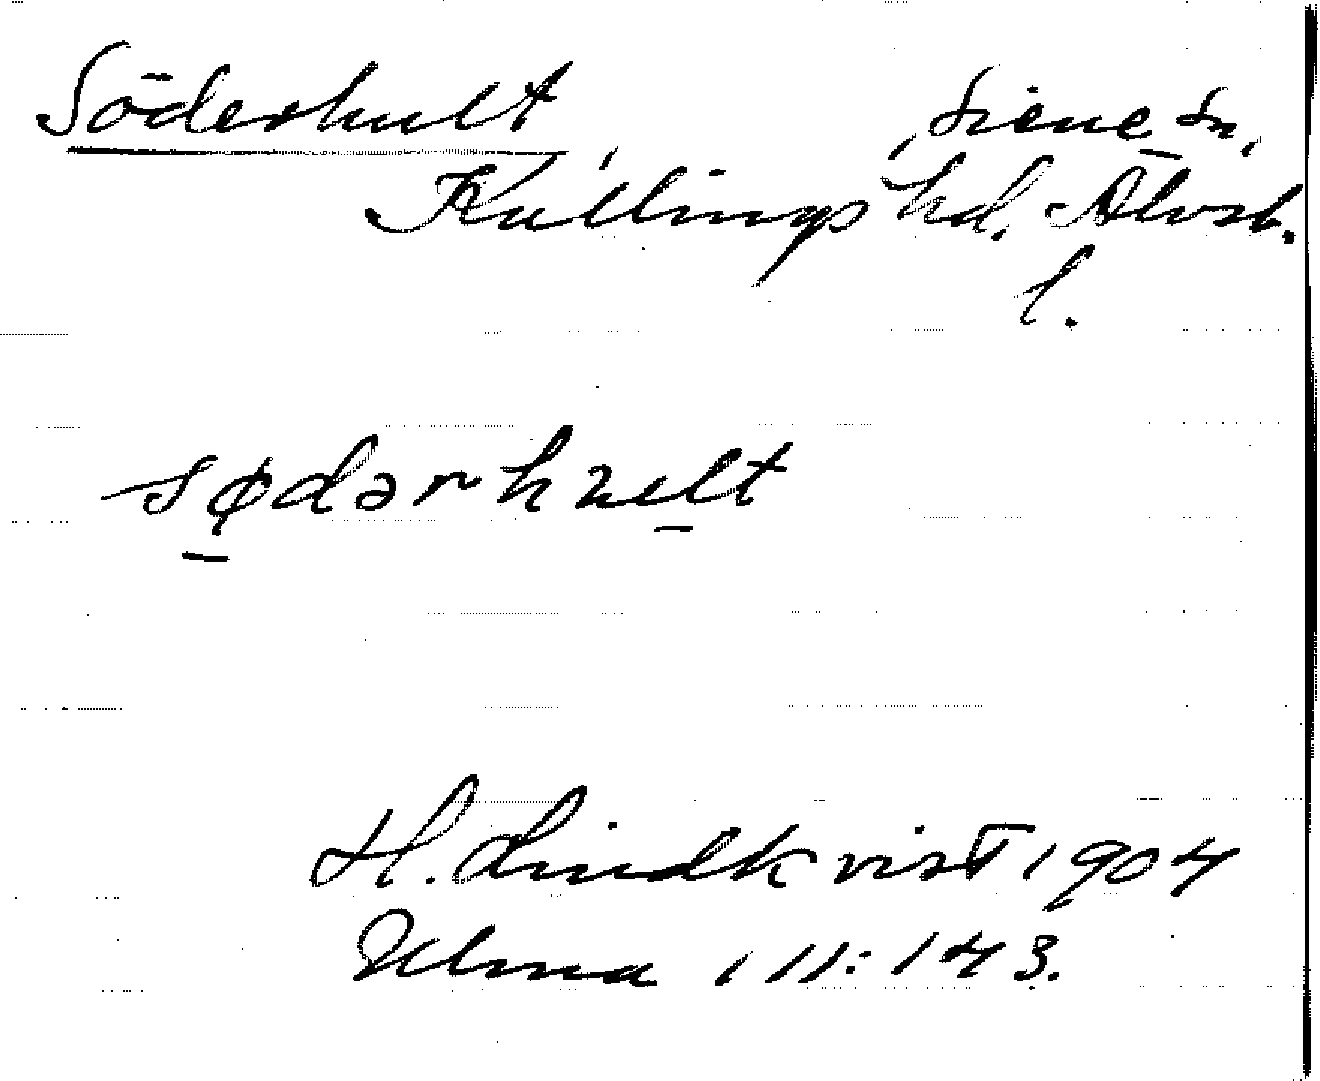 Söderhult, Siene sn,
Kullings hd. Älvsb.
l.
sødərhult
H. Lindkvist 1904
Ulma 111:143.